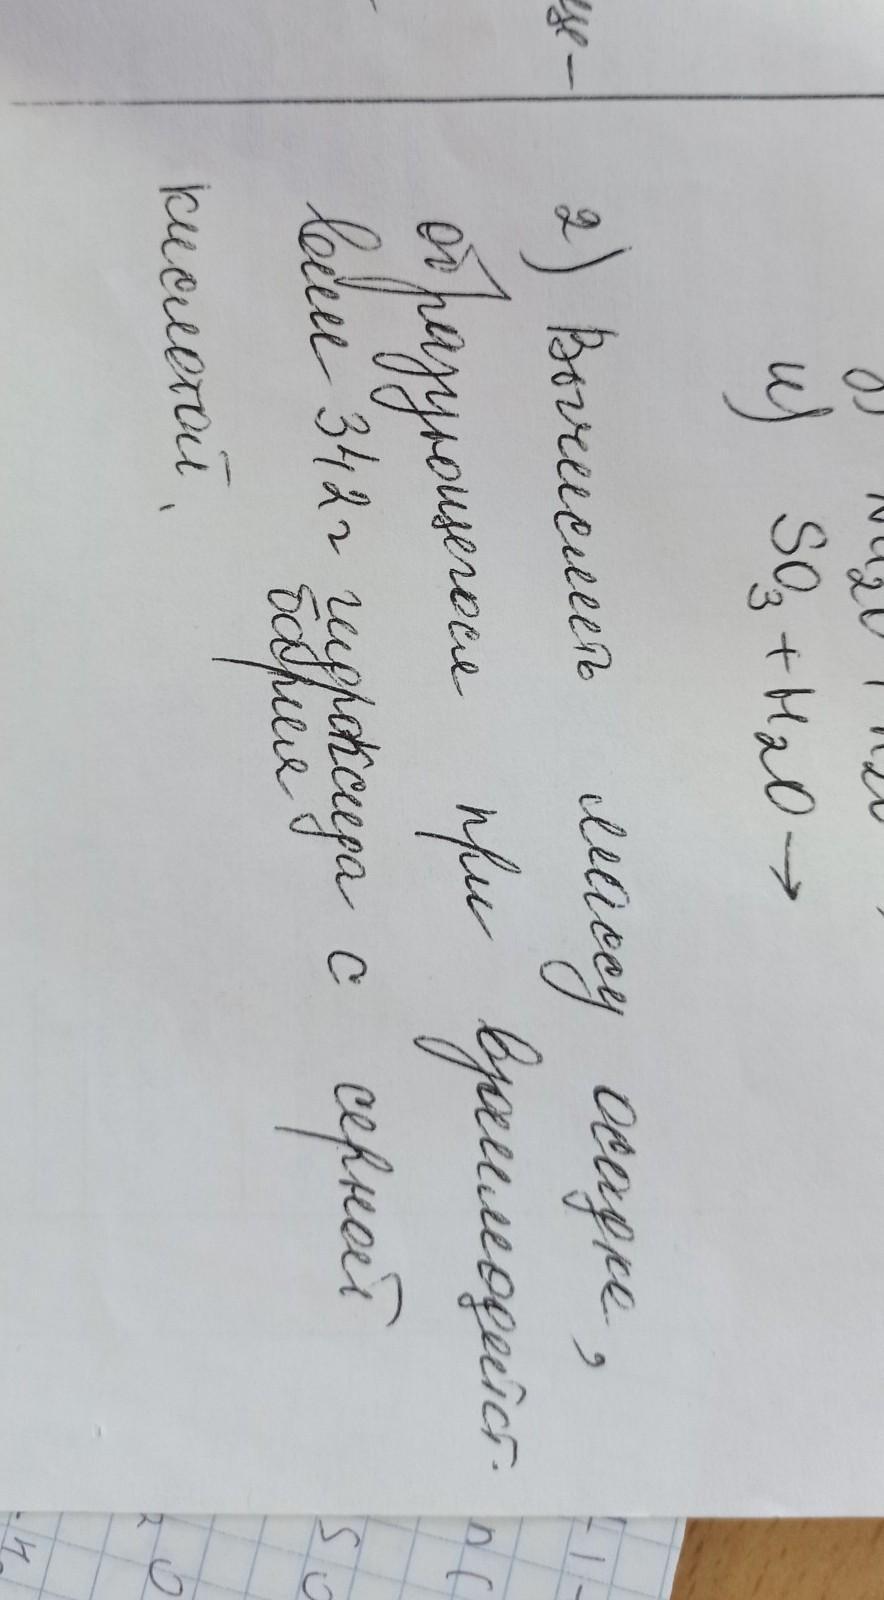 и) SO3 + H2O →
2) Вычислить массу осадка,
образующегося при взаимодейст-
вии 342 г гидроксида с серной
бария
кислотой.